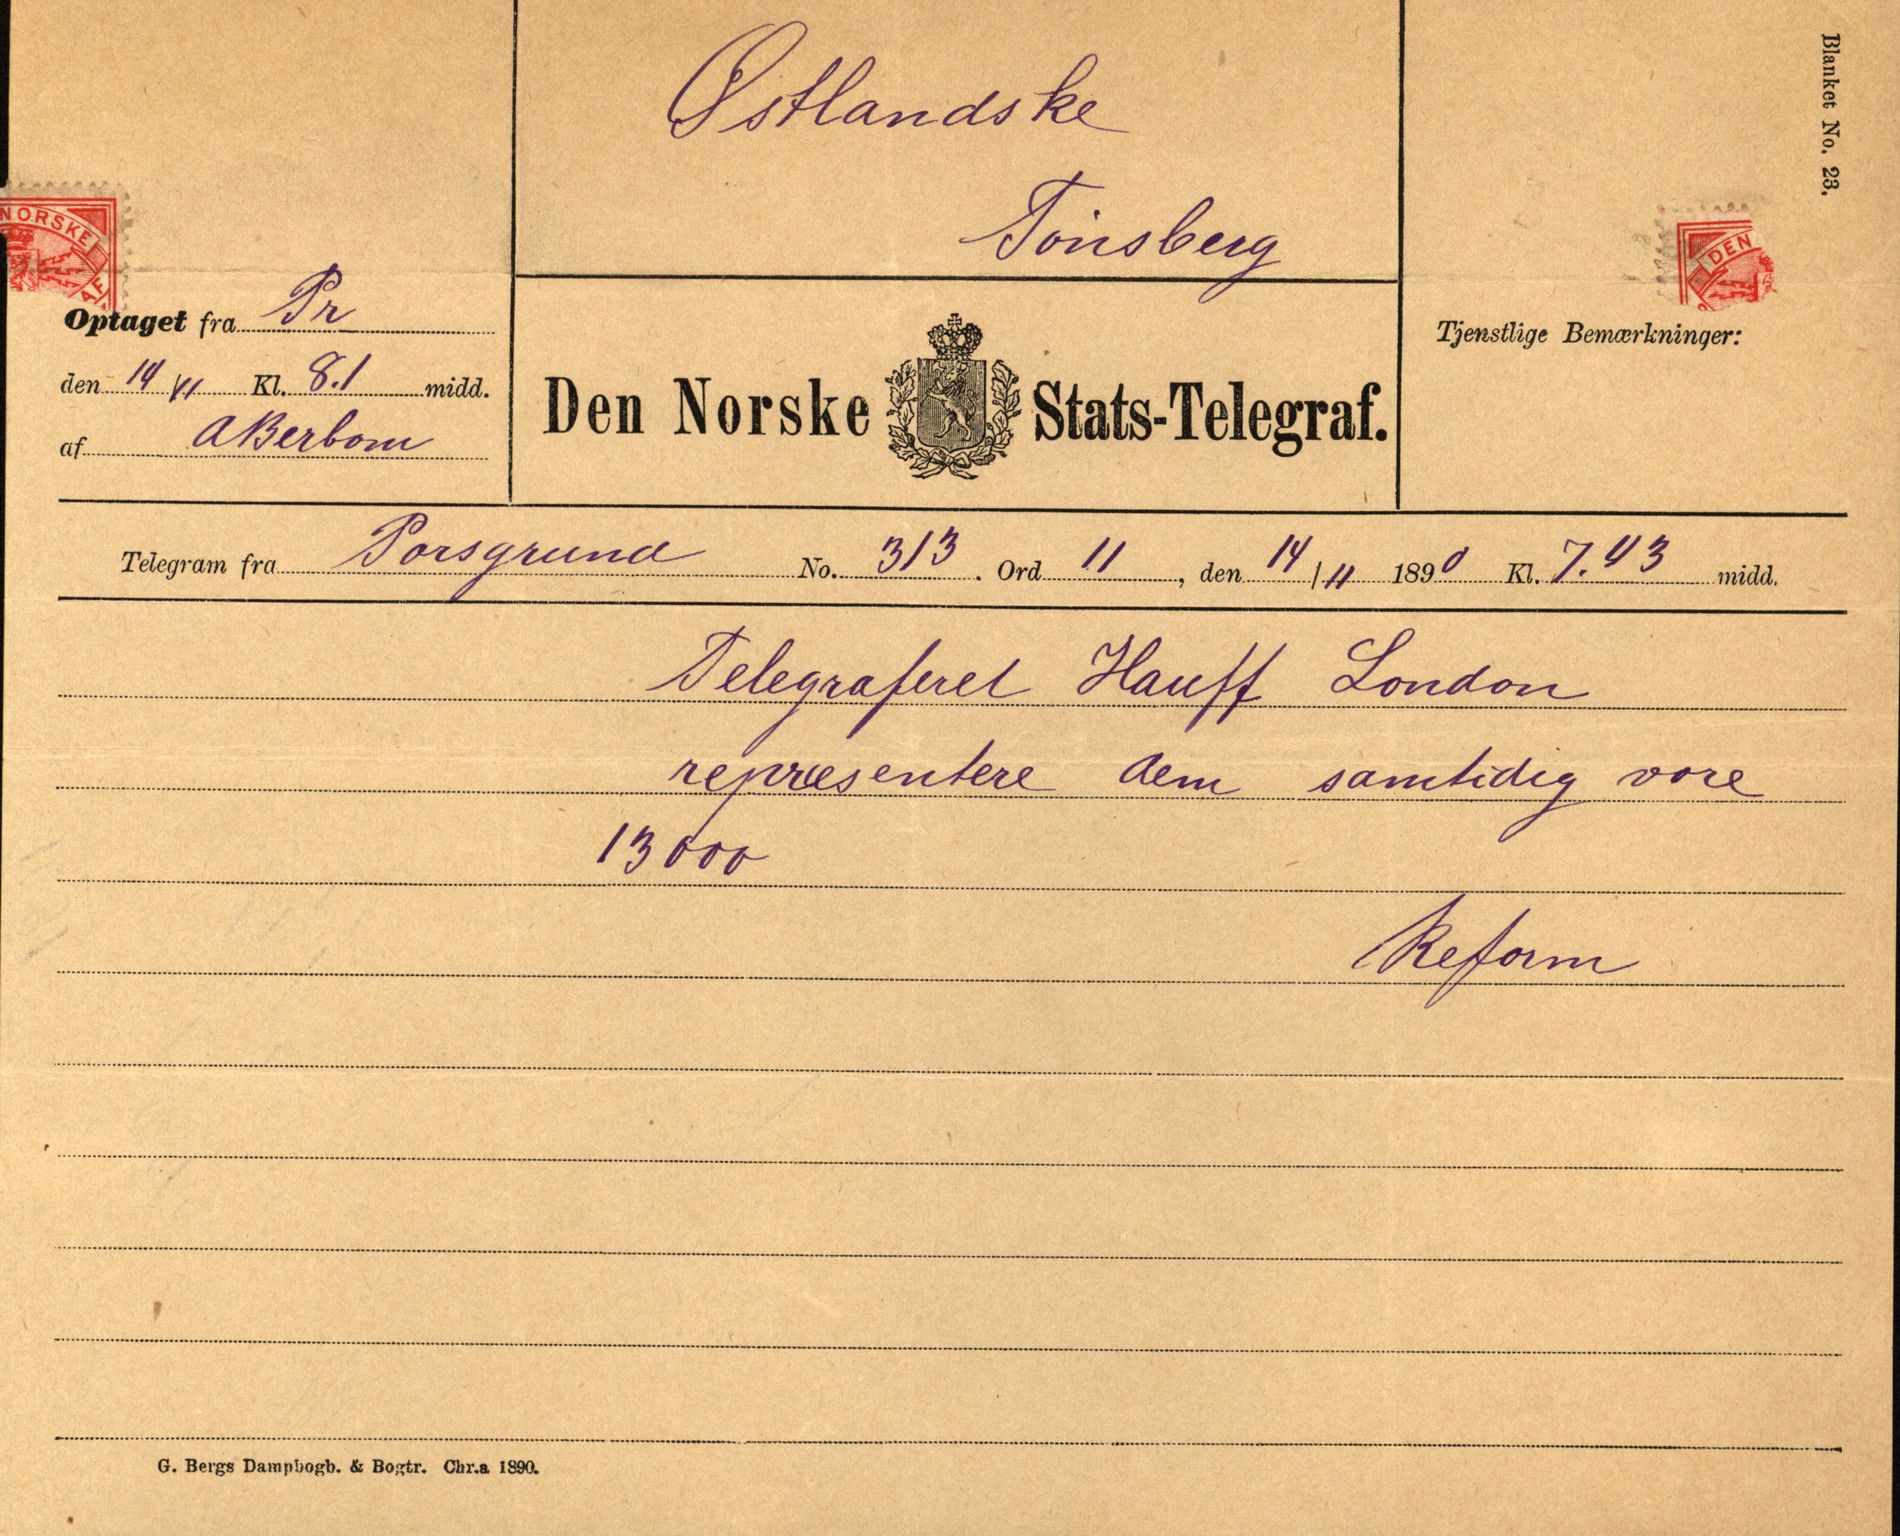 Blanket No. 23.
Østlandske
Tönsberg
NORSKE
DEN
Optaget fra Pr
den 14/11 Kl. 8.1 midd.
af ABerbom
Den Norske Stats-Telegraf.
Tjenstlige Bemærkninger:
Telegram fra Porsgrund No. 313. Ord 11, den 14/11 1890 Kl. 7.43 midd.
Telegraferet Hauff London
repræsentere dem samtidig vore
13000
Reform
G. Bergs Dampbogb. & Bogtr. Chr.a 1890.